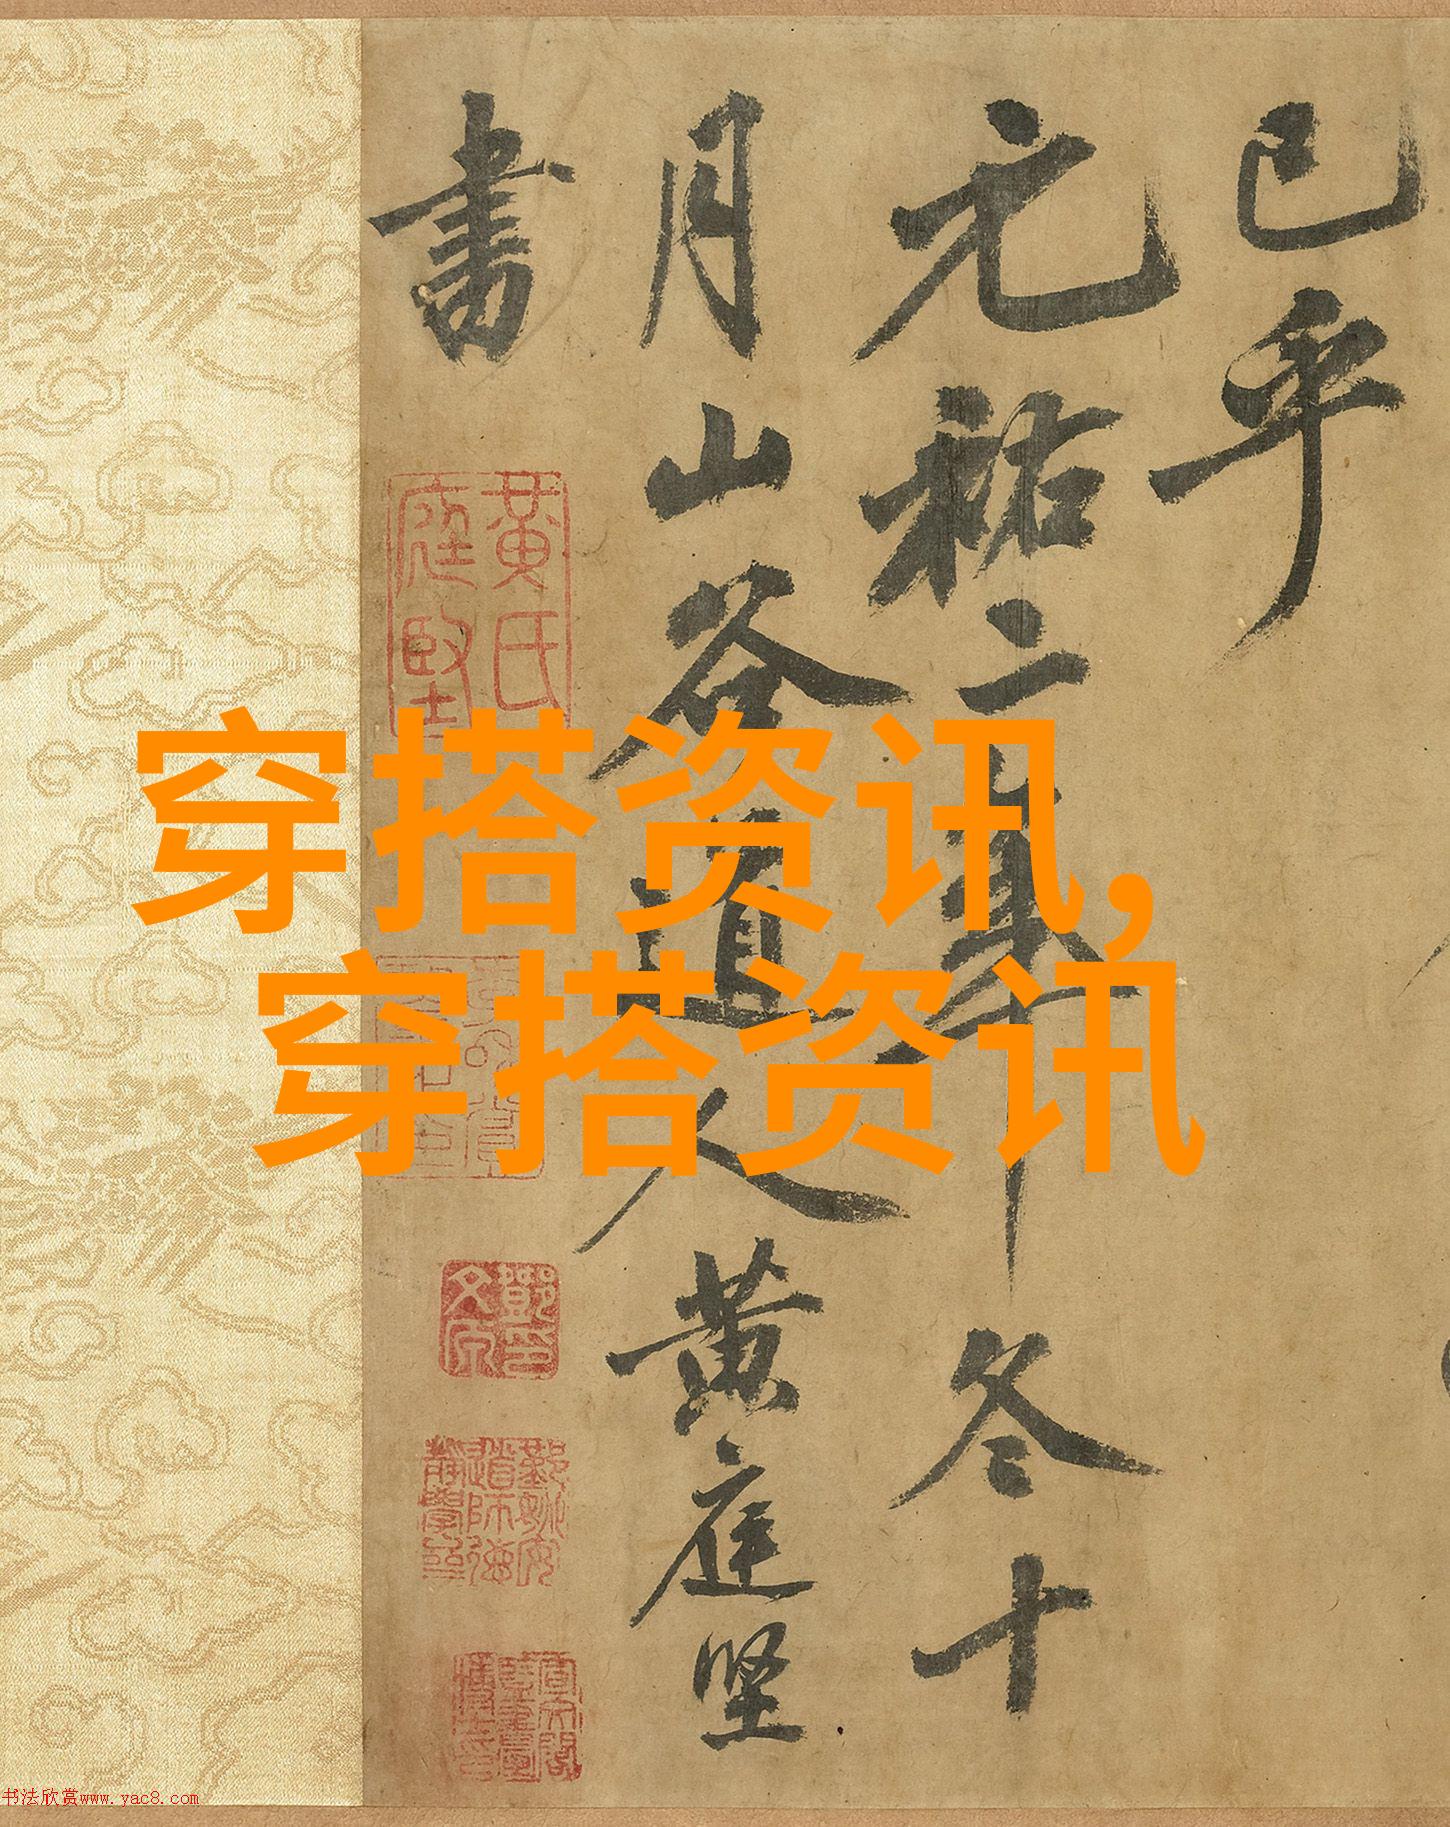 已乎
元祐二年冬十
月山谷道人黄庭坚
書
黄氏
庭堅
穿搭资讯,
穿搭资讯
书法欣赏www.yac8.com